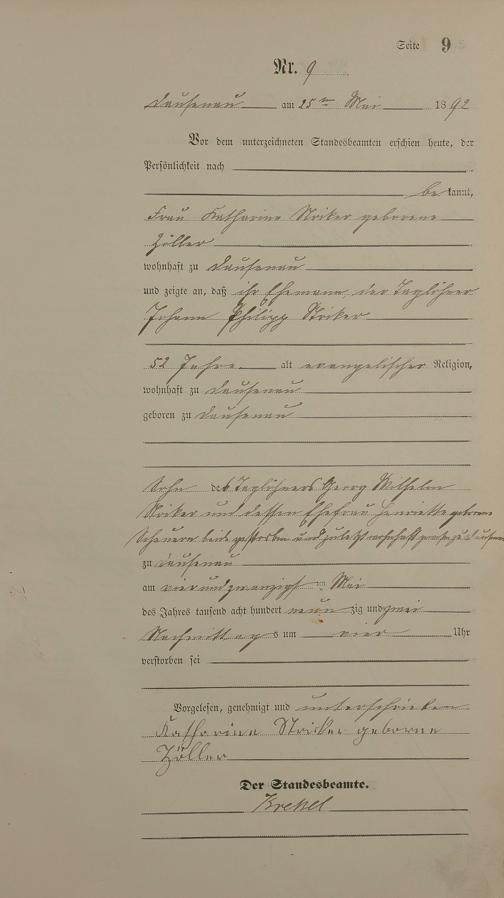 Seite 9
Nr. 9
Dausenau am 25ten Mai 1892
Vor dem unterzeichneten Standesbeamten erschien heute, der
Persönlichkeit nach
bekannt,
Frau Katharine Striker geborene
Zöller
wohnhaft zu Dausenau
und zeigte an, daß ihr Ehemann, der Taglöhner
Johann Philipp Striker
52 Jahre alt evangelischer Religion,
wohnhaft zu Dausenau
geboren zu Dausenau
Sohn des Taglöhners Georg Wilhelm
Striker und dessen Ehefrau Henriette geborene
Scheuern beide gestorben und zuletzt wohnhaft gewesen zu Dausenau
zu Dausenau
am vierundzwanzigsten Mai
des Jahres tausend acht hundert neunzig und zwei
Nachmittags um vier Uhr
verstorben sei
Vorgelesen, genehmigt und unterschrieben
Katharine Striker geborne
Zöller
Der Standesbeamte.
Krekel